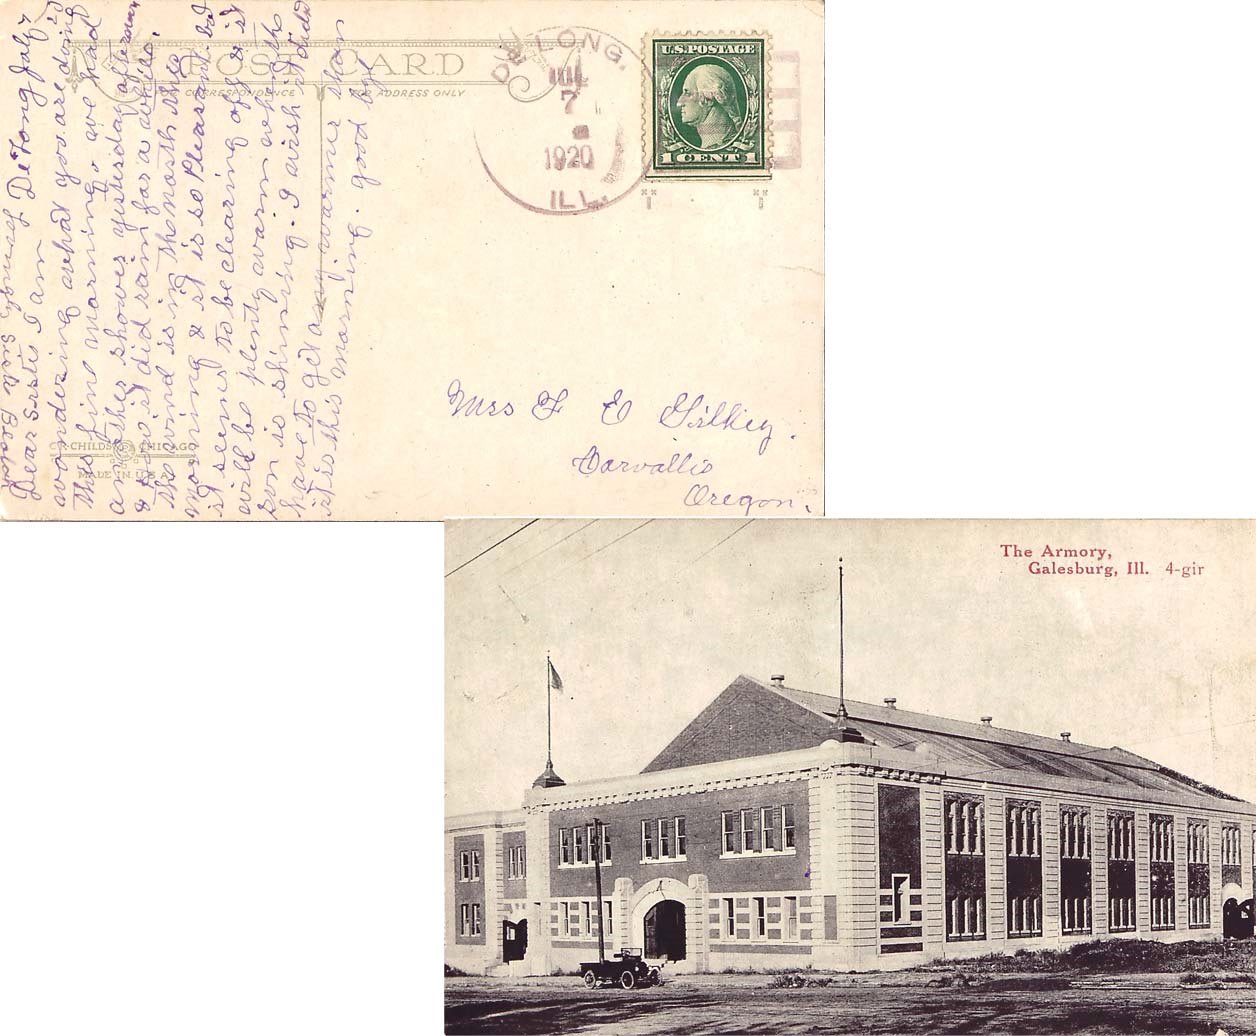 POST CARD
FOR CORRESPONDENCE
FOR ADDRESS ONLY
DE LONG.
JUL
7
1920
ILL.
U.S. POSTAGE
1 CENT 1
De Long July 7
Dear Sister I am
wondering what you are doing
this fine morning, we had
another shower yesterday afternoon
it did rain for a while.
the wind is in the north this
morning & it is so Pleasant.
it seems to be clearing off & it
will be plenty warm when the
son is shining. I wish it did
have to get any warmer than
it is this morning. good bye
Mrs F E Gilkey.
Corvallis
Oregon.
C.R. CHILDS CHICAGO
MADE IN U.S.A.
The Armory,
Galesburg, Ill. 4-gir